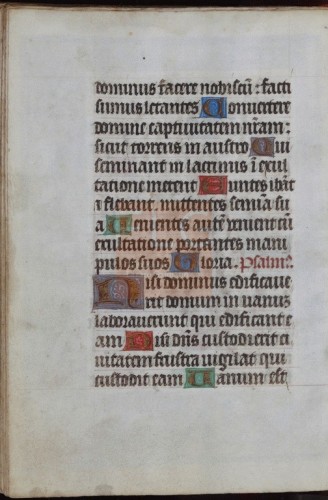 dominus facere nobiscū : facti
sumus letantes Conuertere
domine captiuitatem nr̄am :
sicut torrens in austro Qui
seminant in lacrimis ī exul
tatione metent Euntes ibāt
⁊ flebant. mittentes semīa su
a Uenientes autē venient cū
exultatione portantes mani
pulos suos Gloria. Psalm⁹.
Nisi dominus edificaue
rit domum in uanum
laborauerunt qui edificant e
am Nisi dn̄s custodierit ci
uitatem frustra uigilat qui
custodit eam Uanum est